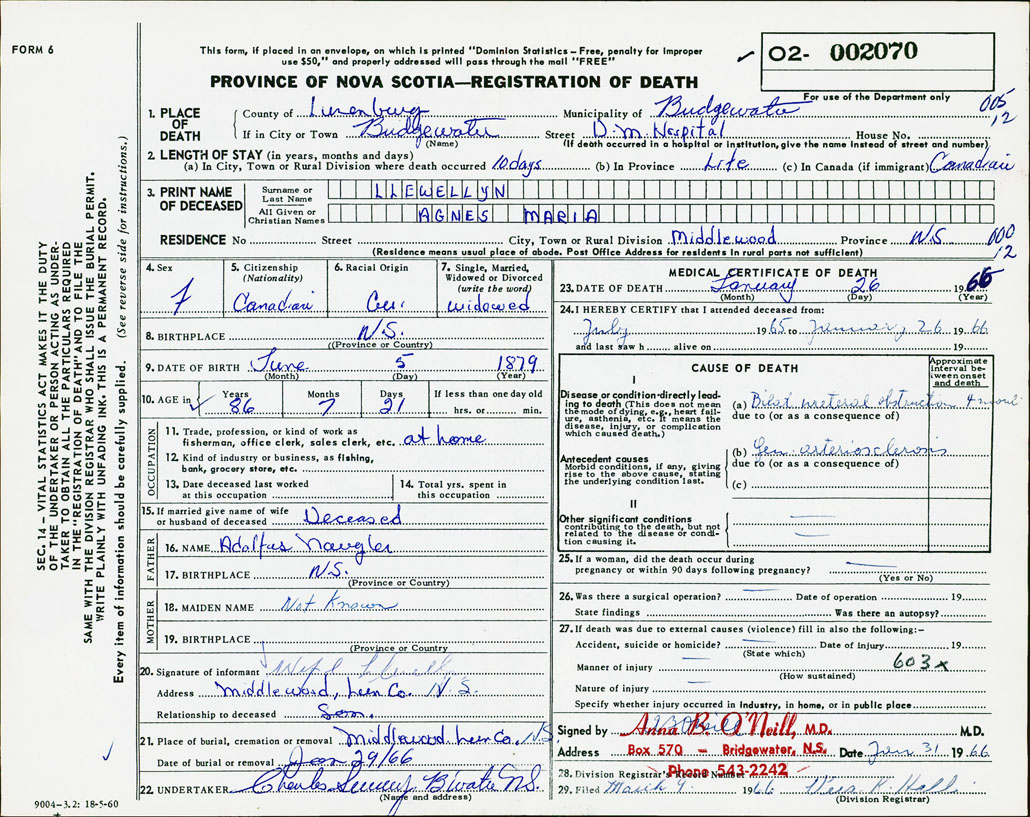 FORM 6
This form, if placed in an envelope, on which is printed "Dominion Statistics – Free, penalty for improper
use $50," and properly addressed will pass through the mail "FREE"
✓ 02- 002070
For use of the Department only
PROVINCE OF NOVA SCOTIA—REGISTRATION OF DEATH
005
12
1. PLACE OF DEATH
County of Lunenburg Municipality of Bridgewater
If in City or Town Bridgewater Street D.M. Hospital House No.
(Name) (If death occurred in a hospital or institution, give the name instead of street and number)
2. LENGTH OF STAY (in years, months and days)
(a) In City, Town or Rural Division where death occurred 10 days (b) In Province Life (c) In Canada (if immigrant) Canadian
3. PRINT NAME OF DECEASED
Surname or Last Name LLEWELLYN
All Given or Christian Names AGNES MARIA
RESIDENCE No Street City, Town or Rural Division Middlewood Province N.S. 000
12
(Residence means usual place of abode. Post Office Address for residents in rural parts not sufficient)
4. Sex f
5. Citizenship (Nationality) Canadian
6. Racial Origin Ger.
7. Single, Married, Widowed or Divorced (write the word) widowed
8. BIRTHPLACE N.S.
((Province or Country)
9. DATE OF BIRTH June 5 1879
(Month) (Day) (Year)
10. AGE in ✓ Years 86 Months 7 Days 21 If less than one day old
hrs. or min.
OCCUPATION
11. Trade, profession, or kind of work as
fisherman, office clerk, sales clerk, etc. at home
12. Kind of industry or business, as fishing,
bank, grocery store, etc.
13. Date deceased last worked
at this occupation
14. Total yrs. spent in
this occupation
15. If married give name of wife
or husband of deceased Deceased
FATHER
16. NAME Adolfus Naugler
17. BIRTHPLACE N.S.
(Province or Country)
MOTHER
18. MAIDEN NAME Not Known
19. BIRTHPLACE
(Province or Country
20. Signature of informant
Address Middlewood, Lun Co. N.S.
Relationship to deceased Son.
21. Place of burial, cremation or removal Middlewood Lun Co. N.S.
Date of burial or removal Jan 29/66
22. UNDERTAKER Charles B'water N.S.
(Name and address)
MEDICAL CERTIFICATE OF DEATH
23. DATE OF DEATH January 26 1966
(Month) (Day) (Year)
24. I HEREBY CERTIFY that I attended deceased from:
July 1965 to January 26 1966
and last saw h alive on 19
CAUSE OF DEATH
Approximate interval between onset and death
I
Disease or condition directly leading to death (This does not mean
the mode of dying, e.g., heart failure, asthenia, etc. It means the
disease, injury, or complication
which caused death.)
(a) Bilat ureteral obstruction
due to (or as a consequence of)
Antecedent causes
Morbid conditions, if any, giving
rise to the above cause, stating
the underlying condition last.
(b) Gen arteriosclerosis
due to (or as a consequence of)
(c)
II
Other significant conditions
contributing to the death, but not
related to the disease or condition causing it.
25. If a woman, did the death occur during
pregnancy or within 90 days following pregnancy?
(Yes or No)
26. Was there a surgical operation? Date of operation 19
State findings Was there an autopsy?
27. If death was due to external causes (violence) fill in also the following:–
Accident, suicide or homicide? Date of injury 19
(State which)
Manner of injury 603x
(How sustained)
Nature of injury
Specify whether injury occurred in industry, in home, or in public place
Signed by Anna B. O'Neill, M.D. M.D.
Address Box 570 — Bridgewater, N.S. Date Jan 31 1966
Phone 543-2242
28. Division Registrar's Record Number
29. Filed March 9 1966
(Division Registrar)
SEC. 14 – VITAL STATISTICS ACT MAKES IT THE DUTY
OF THE UNDERTAKER OR PERSON ACTING AS UNDER-
TAKER TO OBTAIN ALL THE PARTICULARS REQUIRED
IN THE "REGISTRATION OF DEATH" AND TO FILE THE
SAME WITH THE DIVISION REGISTRAR WHO SHALL ISSUE THE BURIAL PERMIT.
WRITE PLAINLY WITH UNFADING INK. THIS IS A PERMANENT RECORD.
Every item of information should be carefully supplied. (See reverse side for instructions.)
✓
9004-3.2: 18-5-60